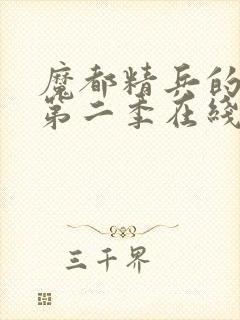 魔都精兵的
第二季在线
三千界